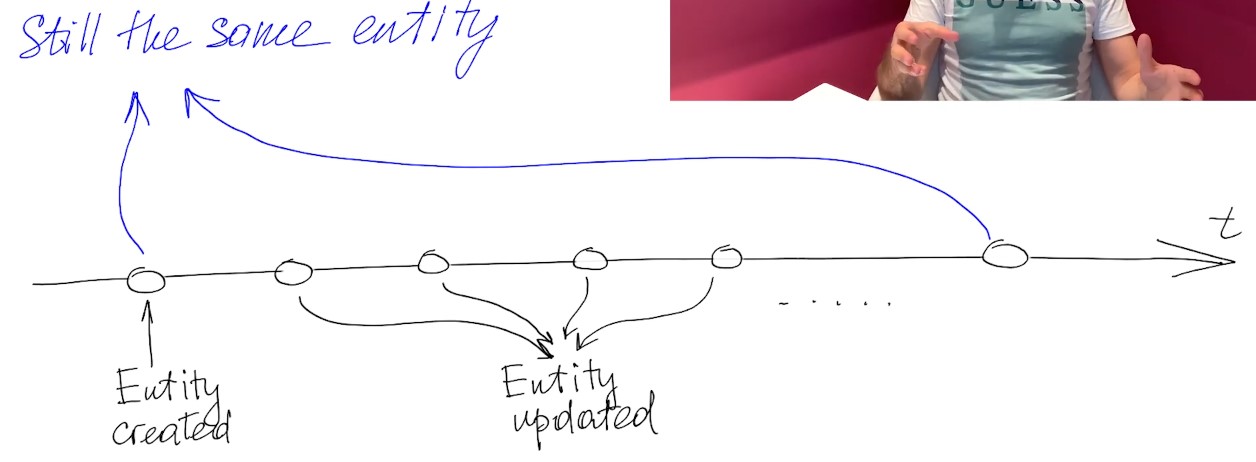 Still the same entity
GUESS
t
Entity
created
Entity
updated